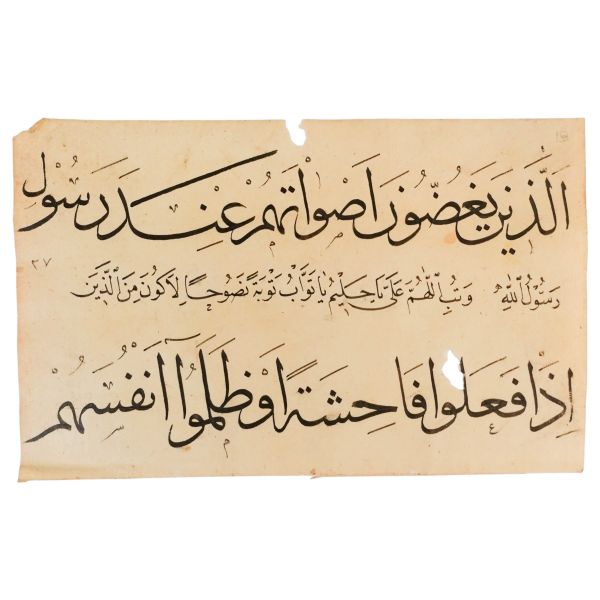 الَّذِينَ يَغُضُّونَ اَصْوَاتَهُمْ عِنْدَ رَسُولِ
رَسُولُ اللّٰهِ وَتُبِ اللّٰهُمَّ عَلَيَّ يَا حَلِيمُ يَا تَوَّابُ تَوْبَةً نَصُوحًا لِاَكُونَ مِنَ الَّذِينَ
٢٧
اِذَا فَعَلُوا فَاحِشَةً اَوْ ظَلَمُوا اَنْفُسَهُمْ